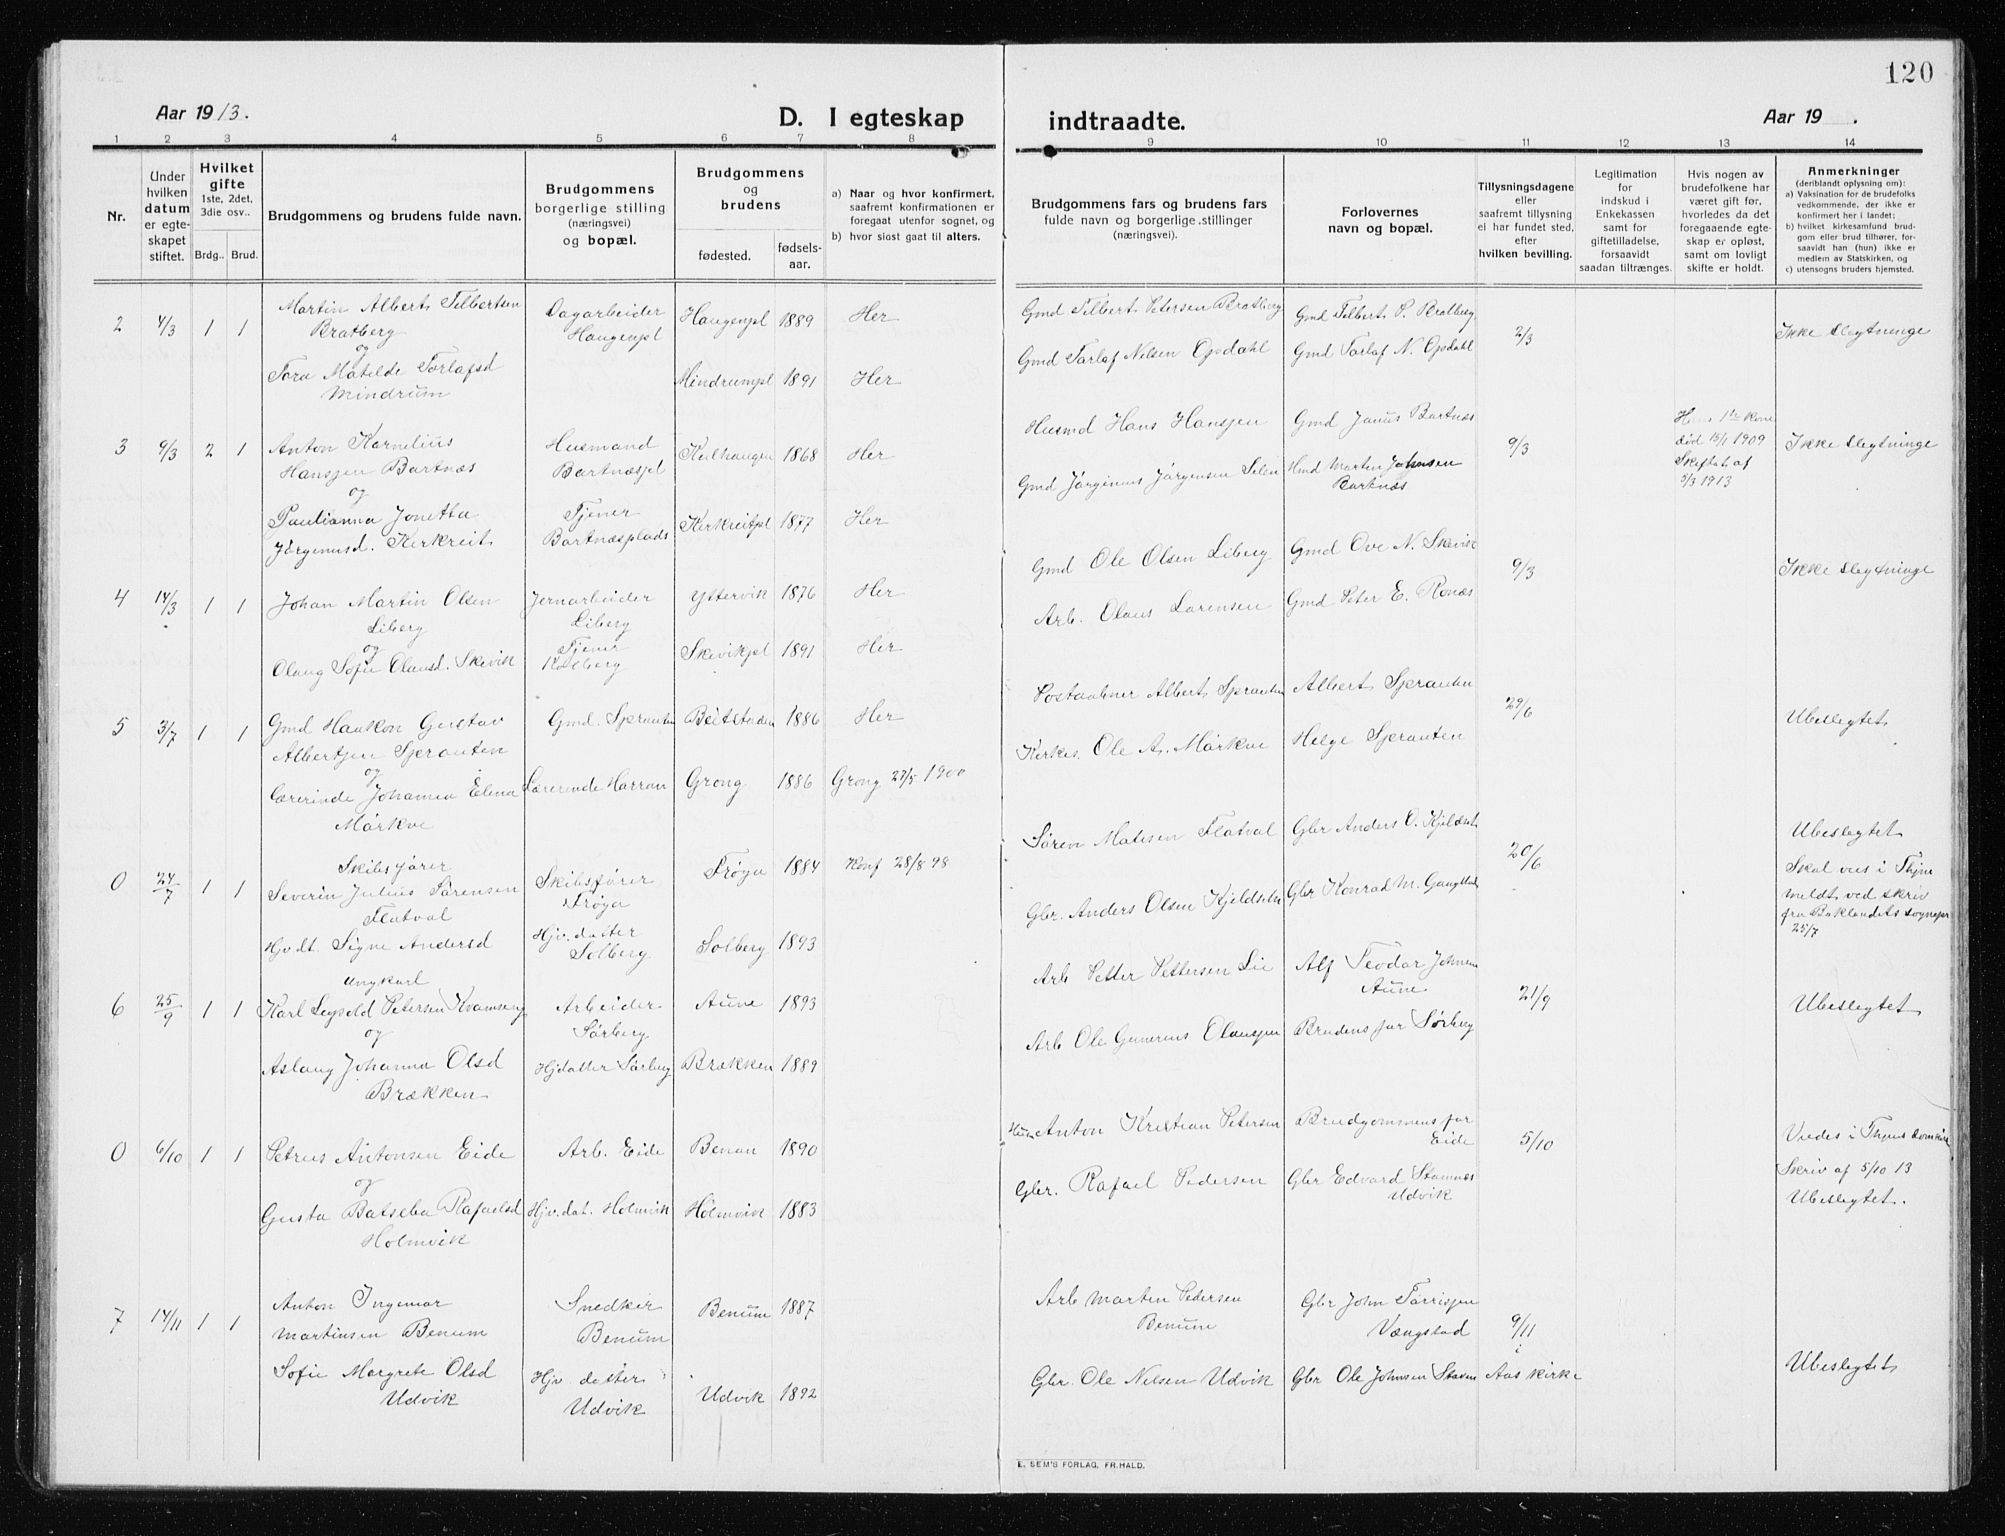 120
Aar 1913.
D. I egteskap
indtraadte.
Aar 19 .
1 2 3 4 5 6 7 8 9 10 11 12 13 14
Nr.
Under
hvilken
datum
er egte-
skapet
stiftet.
Hvilket
gifte
1ste, 2det,
3die osv..
Brdg.. Brud.
Brudgommens og brudens fulde navn.
Brudgommens
borgerlige stilling
(næringsvei)
og bopæl.
Brudgommens
og
brudens
fødested.
fødsels-
aar.
a) Naar og hvor konfirmert,
saafremt konfirmationen er
foregaat utenfor sognet, og
b) hvor sisst gaat til alters.
Brudgommens fars og brudens fars
fulde navn og borgerlige stillinger
(næringsvei).
Forlovernes
navn og bopæl.
Tillysningsdagene
eller
saafremt tillysning
ei har fundet sted,
efter
hvilken bevilling.
Legitimation
for
indskud i
Enkekassen
samt for
giftetilladelse,
forsaavidt
saadan tiltrænges.
Hvis nogen av
brudefolkene har
været gift før,
hvorledes da det
foregaaende egte-
skap er opløst,
samt om lovligt
skifte er holdt.
Anmerkninger
(deriblandt oplysning om):
a) Vaksination for de brudefolks
vedkommende, der ikke er
konfirmert her i landet;
b) hvilket kirkesamfund brud-
gom eller brud tilhører, for-
saavidt han (hun) ikke er
medlem av Statskirken, og
c) utensogns bruders hjemsted.
2 4/3 1 1
Martin Albert Tilbertsen
Bratberg
og
Tora Matilde Torlafsd
Mindrum
Dagarbeider
Haugenpl
Haugenpl 1889 Her
Mindrumpl 1891 Her
Gmd Tilbert Petersen Bratberg
Gmd Torlaf Nilsen Opdahl
Gmd Tilbert P. Bratberg
Gmd Torlaf N. Opdahl
2/3
Ikke slegtninge
3 9/3 2 1
Anton Kornelius
Hansen Bartnæs
og
Paulianna Jonetta
Jørginusd. Kerkreit
Husmand
Bartnæspl
Tjener
Bartnæsplads
Keilhaugen 1868 Her
Kerkreitpl 1877 Her
Husmd Hans Hansen
Gmd Jørginus Jørgensen
Gmd Janus Bartnæs
Hmd Morten Johnsen
Bartnæs
9/3
Hans 1ste kone
død 13/1 1909
Skiftet af
5/3 1913
Ikke slegtninge
4 14/3 1 1
Johan Martin Olsen
Liberg
og
Olaug Sofie Olausd. Skevik
Jernarbeider
Liberg
Tjener
Kolberg
Yttervik 1876 Her
Skevikpl 1891 Her
Gmd Ole Olsen Liberg
Arb. Olaus Lorensen
Gmd Ove N. Skevik
Gmd Peter E. Ronæs
9/3
Ikke slegtninge
5 3/7 1 1
Gmd Haakon Gustav
Albertsen Sprauten
og
Lærerinde Johanna Elena
Mørkve
Gmd. Sprauten
Lærerinde Harran
Beitstaden 1886 Her
Grong 1886 Grong 27/5 1900
Postaabner Albert Sprauten
Kirkes. Ole A. Mørkve
Albert Sprauten
Helge Sprauten
29/6
Ubeslegtet
0 24/7 1 1
Skibsfører
Severin Julius Sørensen
Flatval
Hjv dt. Signe Andersd
Skibsfører
Frøya
Hjv. datter
Solberg
Frøya 1884 Konf 28/8 98
Solberg 1893
Søren Matisen Flatval
Gbr. Anders Olsen Kjeldseth
Gbr Anders O. Kjeldseth
Gbr Konrad M. Gangstad
20/6
Ubeslegtet
Skal vies i Thjem
meldt ved skriv
fra Baklandets sognepr
25/7
6 25/9 1 1
Ungkarl
Karl Leopold Petersen Kvamseng
og
Aslaug Johanna Olsd
Brækken
Arbeider
Sørberg
Hjdatter Sørberg
Aune 1893
Brækken 1889
Arb Petter Pettersen Lie
Arb Ole Gunerius Olaussen
Alf Teodor Johnsen
Aune
Brudens far Sørberg
21/9
Ubeslegtet
0 6/10 1 1
Petrus Antonsen Eide
og
Gusta Batseba Rafaelsd
Holmvik
Arb. Eide
Hjv. dat. Holmvik
Benan 1890
Holmvik 1883
Husm Anton Kristian Petersen
Gbr. Rafael Pedersen
Brudgommens far
Eide
Gbr Edvard Stamnes
Udvik
5/10
Viedes i Thjems Domkirke
Skriv af 5/10 13
Ubeslegtet.
7 14/11 1 1
Anton Ingemar
Martinsen Benum
Sofie Margrete Olsd
Udvik
Snedker
Benum
Hjv datter
Udvik
Benum 1887
Udvik 1892
Arb Morten Pedersen
Benum
Gbr. Ole Nilsen Udvik
Gbr John Torrissen
Vængstad
Gbr Ole Johnsen
9/11
i
Aas kirke
Ubeslegtet
E. SEM'S FORLAG, FR.HALD.